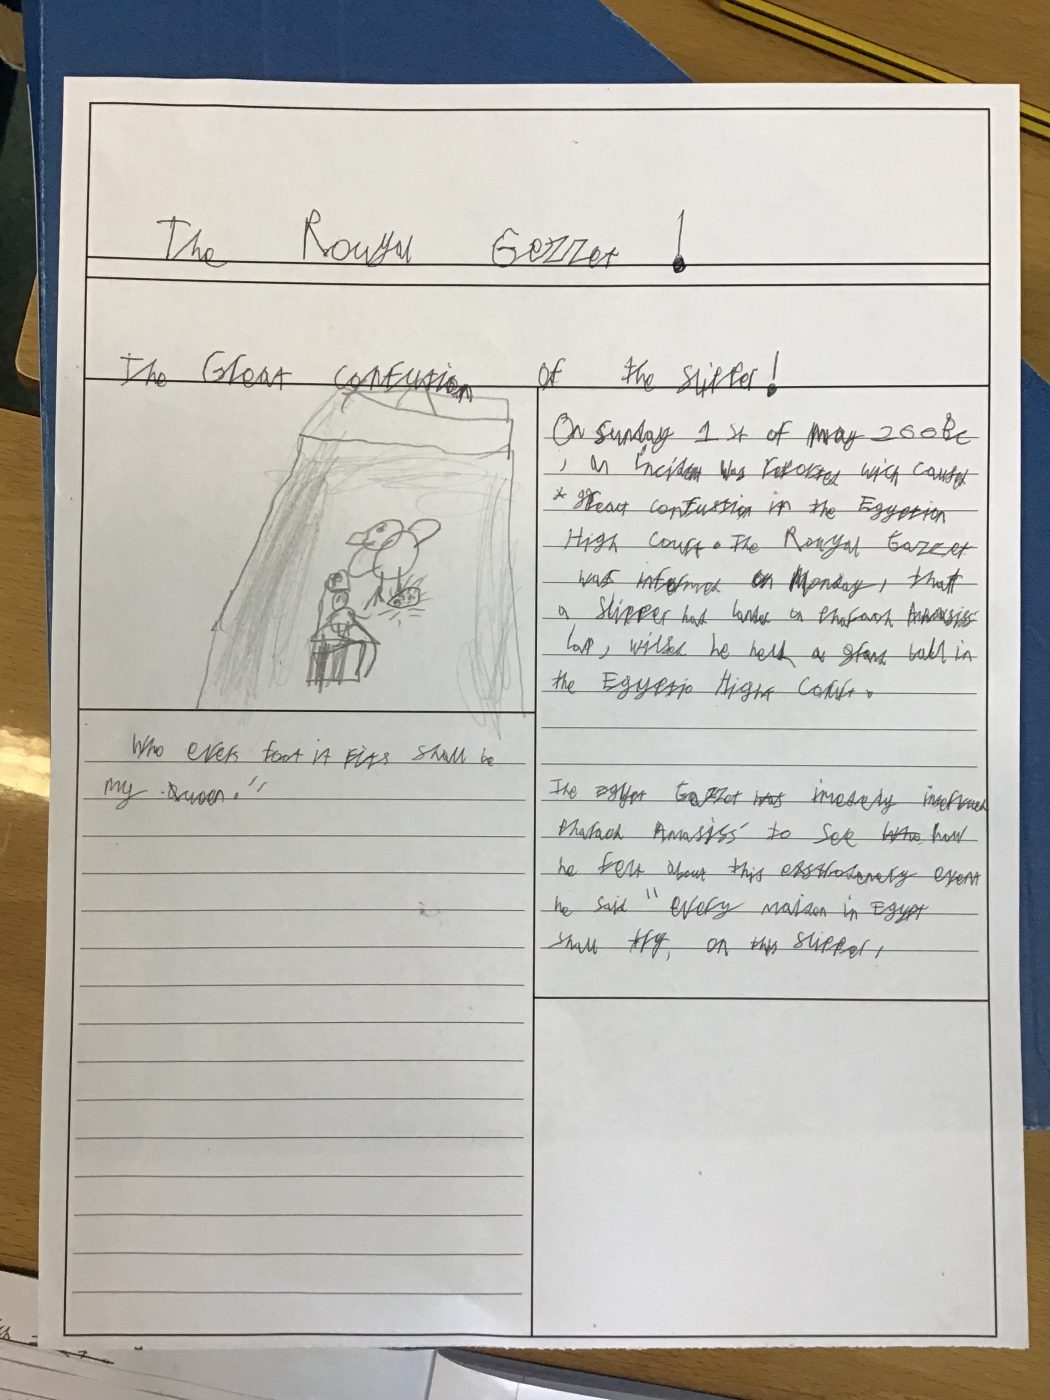 The Rouyal Gezzet !
The Great confution of the slipper!
On Sunday 1st of may 200Bc
, an incident was reported with caused
great confustion in the Egyption
High Court. The Rouyal Gazzet
was informed on Monday, that
a slipper had landed on Pharaoh Amasiss
lap, willst he held a grand ball in
the Egyptio Hight Court.
The Egypt Gazzet
Pharaoh Amasiss to see how
he felt about this event
he said "every maiden in Egypt
shall try, on this slipper,
Who evers foot it fits shall be
my Queen."